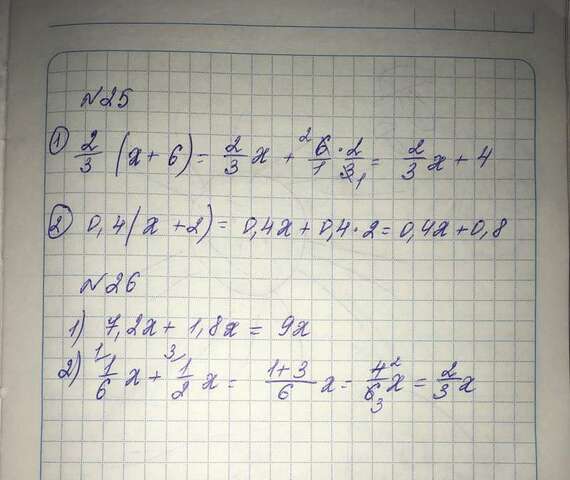 №25
① 2/3 (x + 6) = 2/3 x + ²6/1 · 2/3₁ = 2/3 x + 4
② 0,4(x + 2) = 0,4x + 0,4 · 2 = 0,4x + 0,8
№26
1) 7,2x + 1,8x = 9x
2) ¹⁾1/6 x + ³⁾1/2 x = 1+3/6 x = 4²/6₃ x = 2/3 x